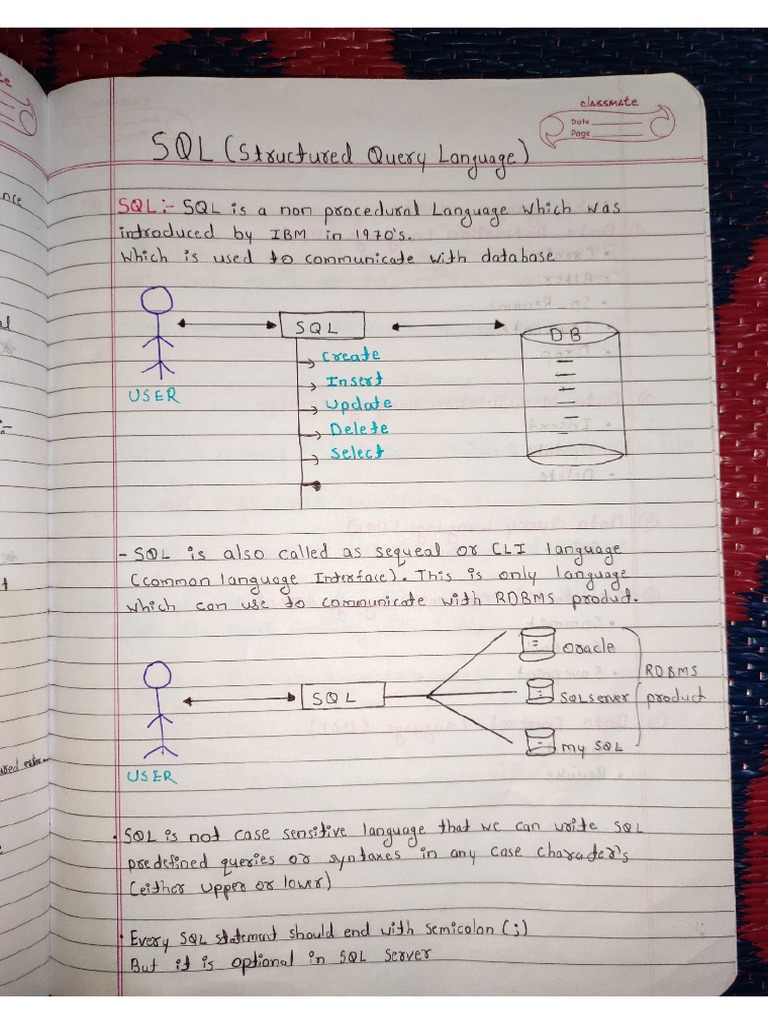 classmate
Date
Page
SQL (Structured Query Language)
SQL:- SQL is a non procedural Language which was
introduced by IBM in 1970's.
Which is used to communicate with database
SQL
DB
Create
Insert
Update
Delete
Select
USER
- SQL is also called as sequeal or CLI language
(common language Interface). This is only language
which can use to communicate with RDBMS product.
Oracle
RDBMS
SQL
SQL server
product
my SQL
USER
• SQL is not case sensitive language that we can write SQL
predefined queries or syntaxes in any case charader's
(eithor upper or lower)
• Every SQL statement should end with semicolon (;)
But it is optional in SQL Server